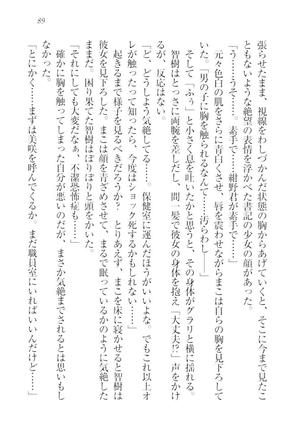 89
張らせたまま、視線をわしづかんだ状態の胸からあげていくと、そこに今まで見たこ
ともないような絶望の表情を浮かべた書記の少女の顔があった。
「う……うそ……。素手で……紺野君が素手で……」
元々色白の肌をさらに青白くさせ、唇を震わせながらまこは自らの胸を見下ろして
いた。
「男の子に胸を触られるなんて……汚らわし……」
そして「ふぅ」と小さく息を吐いたかと思うと、その身体がグラリと横に揺れた。
智樹はとっさに両腕を差しだし、間一髪で彼女の身体を抱え「大丈夫!?」声をかけ
るが、反応はない。
「ど、どうしよう気絶してる……。保健室に運んだほうがいいよな、でもこれ以上オ
レが触ったって知ったら、今度はショック死するかもしれないし……」
起きるまで様子を見るべきだろうか? とりあえず、まこを床に寝かせると智樹は
彼女を見下ろした。まこは顔を青ざめさせて、まるで眠っているかのように気絶した
ままだ。困り果てた智樹はぽりぽりと頭をかいた。
「それにしても大変だなぁ、不潔恐怖症も……」
確かに胸を触ってしまった自分が悪いのだが、まさか気絶までされるとは思いもし
なかった。
「とにかく……まずは美咲を呼んでくるか、まだ職員室にいればいいんだけど……」